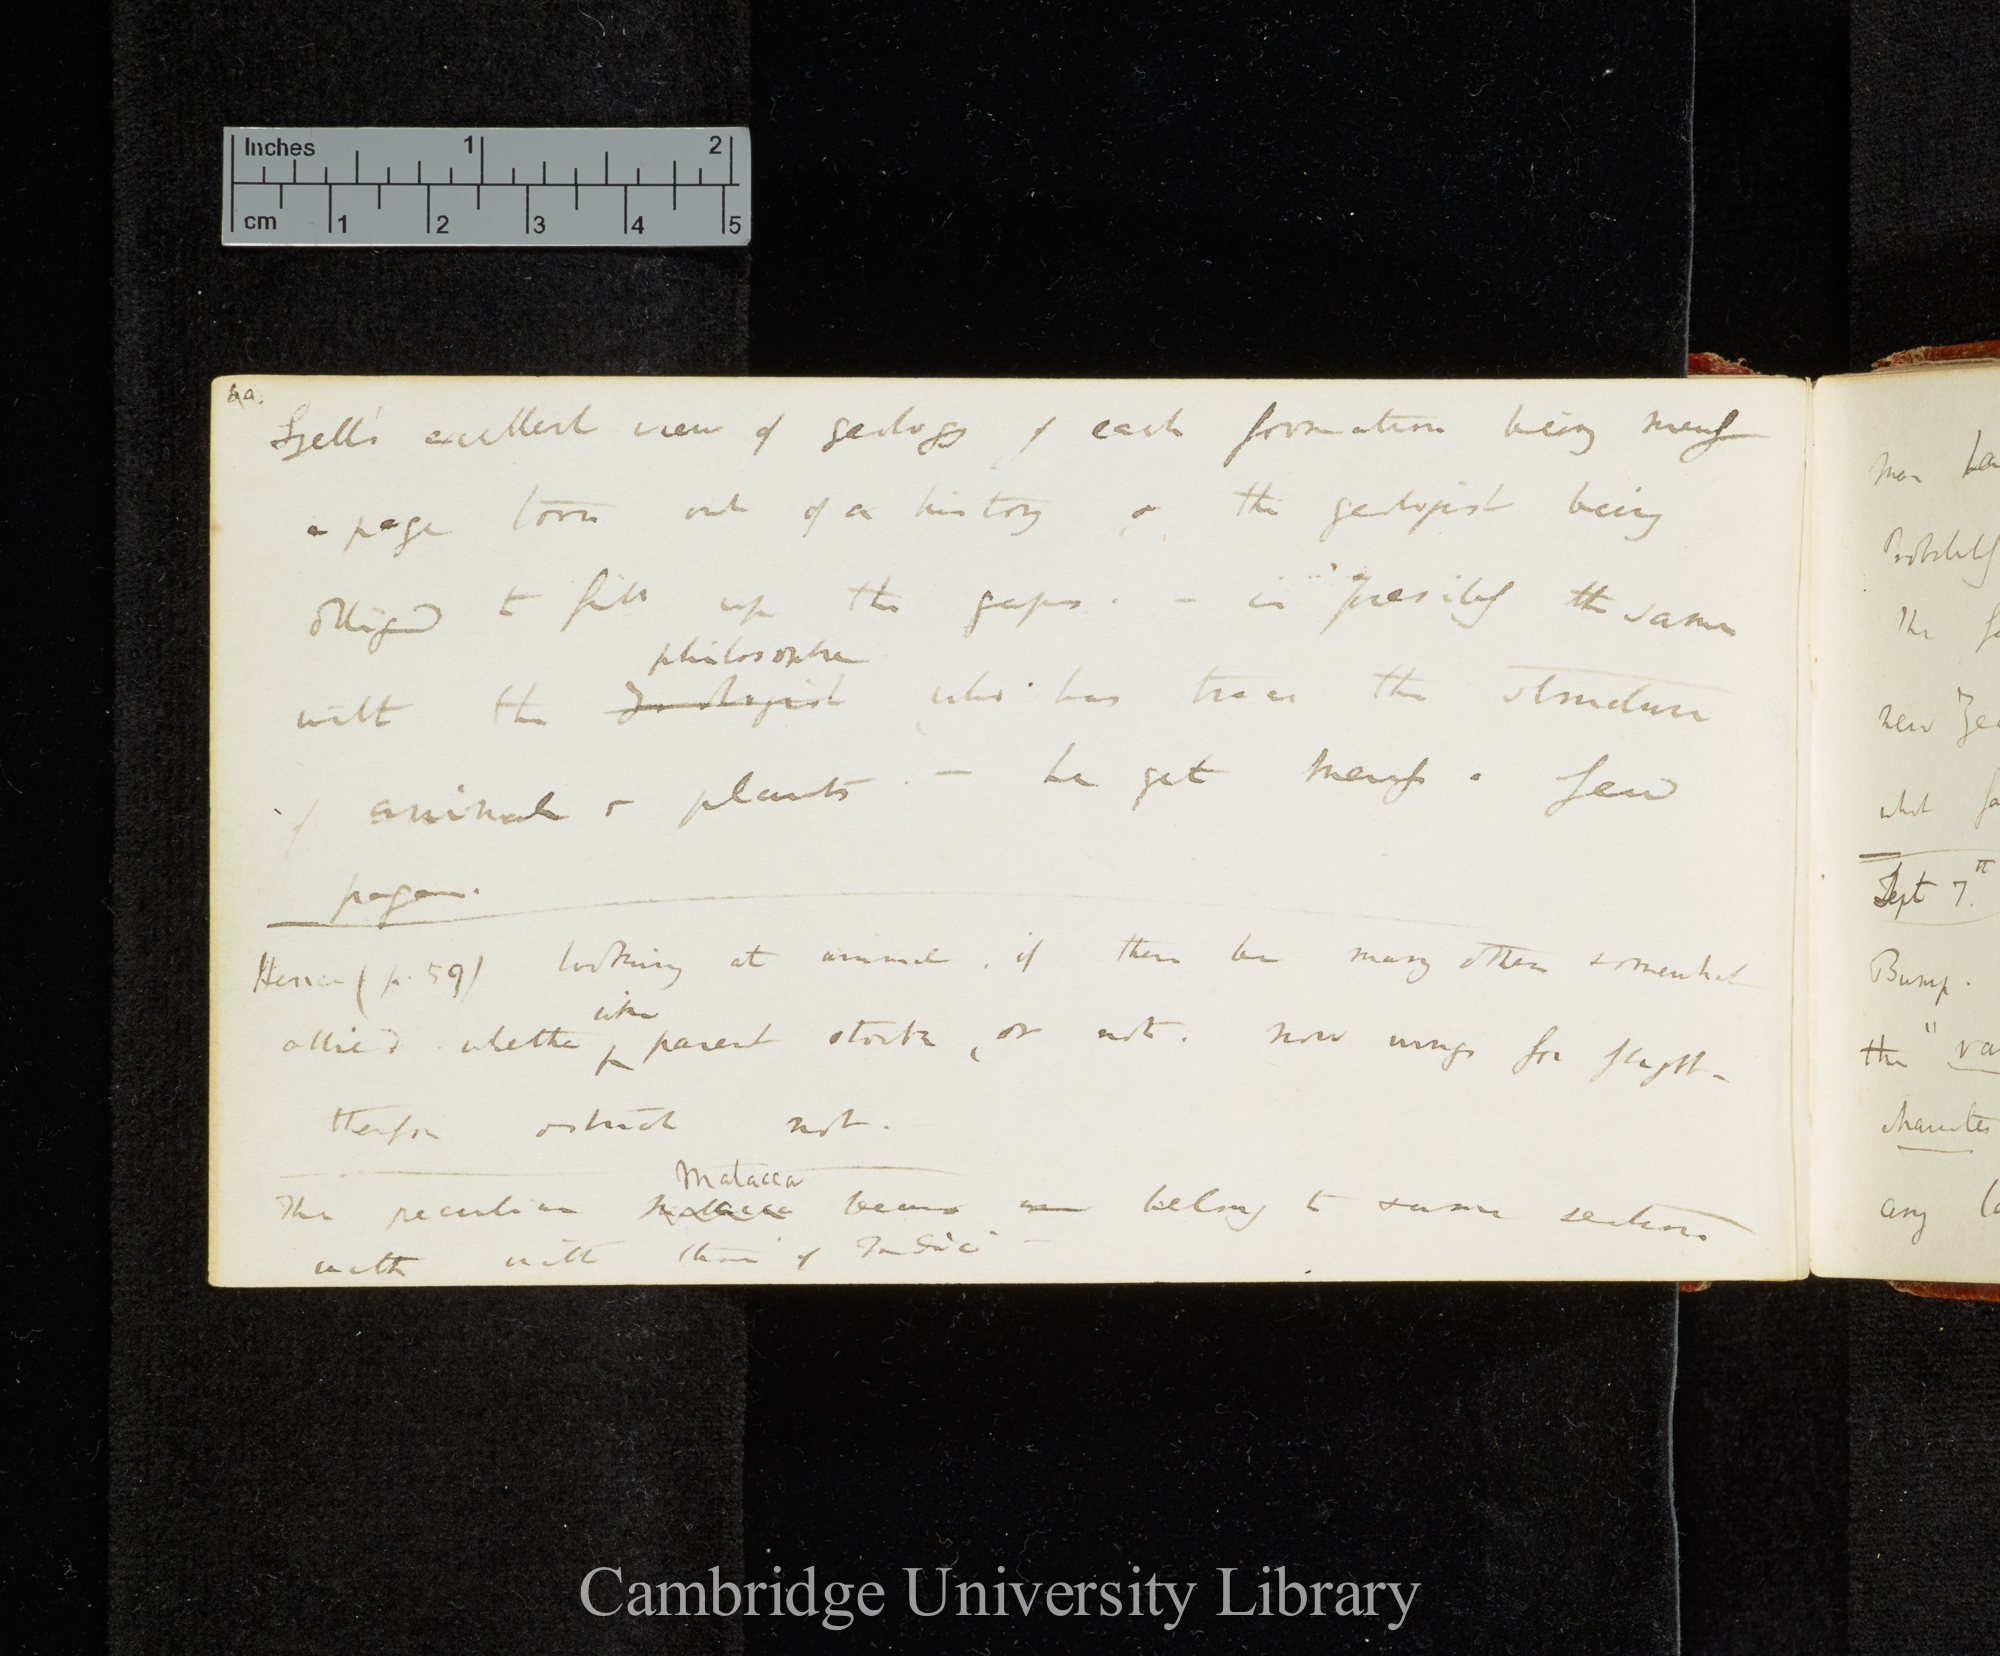 Inches 1 2
cm 1 2 3 4 5
60.
Lyell's excellent view of geology, of each formation being merely
a page torn out of a history, & the geologist being
obliged to fill up the gaps. — is precisely the same
philosopher
with the Zoologist who has trace the structure
of animals & plants. — he get merely a few
pages.
Hence (p. 59) looking at animal, if there be many others somewhat
like
allied whether parent stock, or not. now wings for flight —
therefore ostrich not.
Malacca
The peculiar Malacca bears belong to same section
with with those of India —
man
Probably
The
new Zea
what
Sept 7th
Bump.
the "
character
any
Cambridge University Library